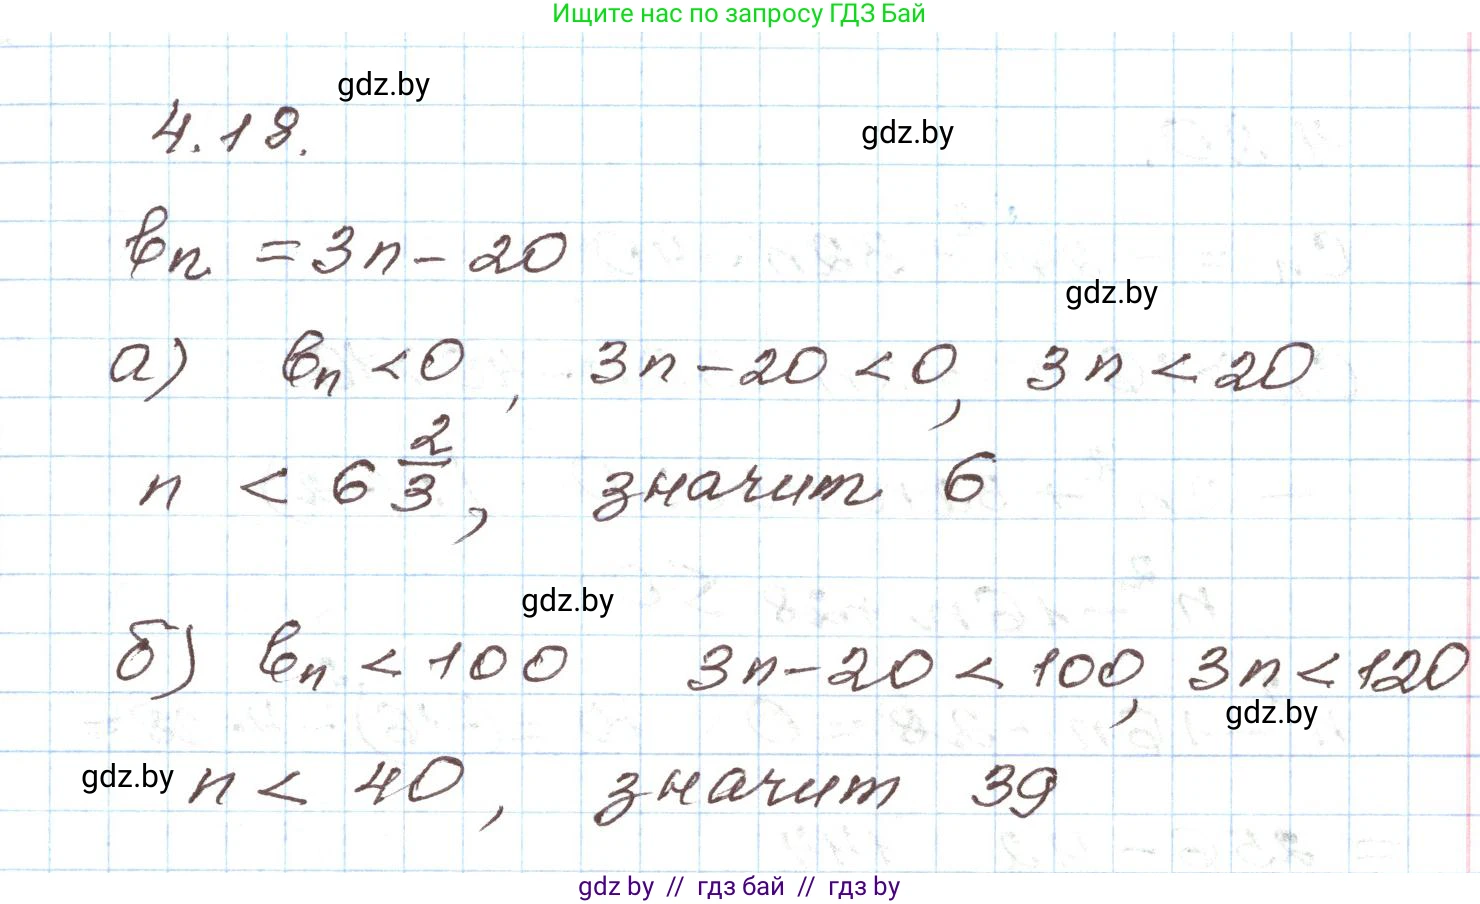 Ищите нас по запросу ГДЗ Бай
gdz.by
4.18.
gdz.by
bn = 3n - 20
gdz.by
а) bn < 0, 3n - 20 < 0, 3n < 20
n < 6 2/3, значит 6
gdz.by
б) bn < 100 3n - 20 < 100, 3n < 120
gdz.by
gdz.by n < 40, значит 39
gdz by // гдз бай // гдз by